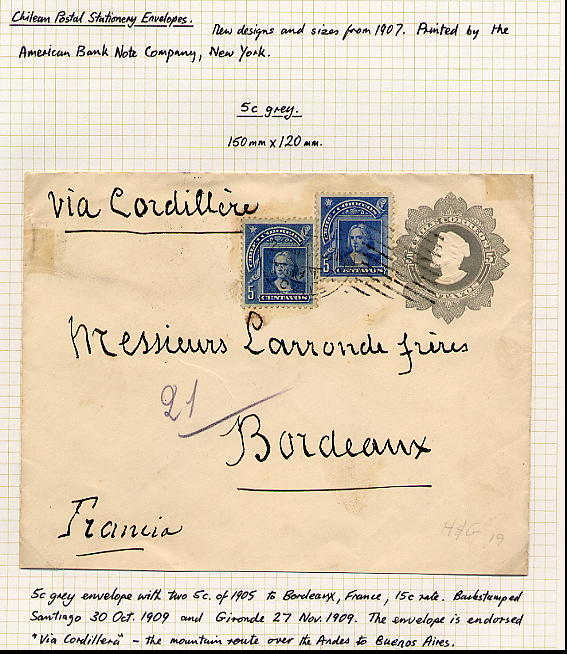 Chilean Postal Stationery Envelopes. New designs and sizes from 1907. Printed by the
American Bank Note Company, New York.
5c grey.
150mm x 120mm.
Via Cordillère
CHILE CORREOS
5 CENTAVOS
5 CENTAVOS
Messieurs Larronde frères
21
Bordeaux
Francia
H&G 19
5c grey envelope with two 5c. of 1905 to Bordeaux, France, 15c rate. Backstamped
Santiago 30 Oct. 1909 and Gironde 27 Nov. 1909. The envelope is endorsed
"Via Cordillera" - the mountain route over the Andes to Buenos Aires.